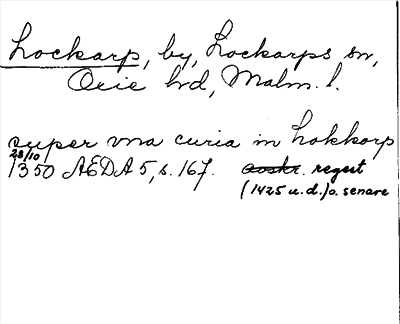 Lockarp, by, Lockarps sn,
Oxie hd, Malm. l.
super vna curia in Lokkorp
28/10
1350 AEDA 5, s. 167. avskr. regest
(1425 u.d.) o. senare